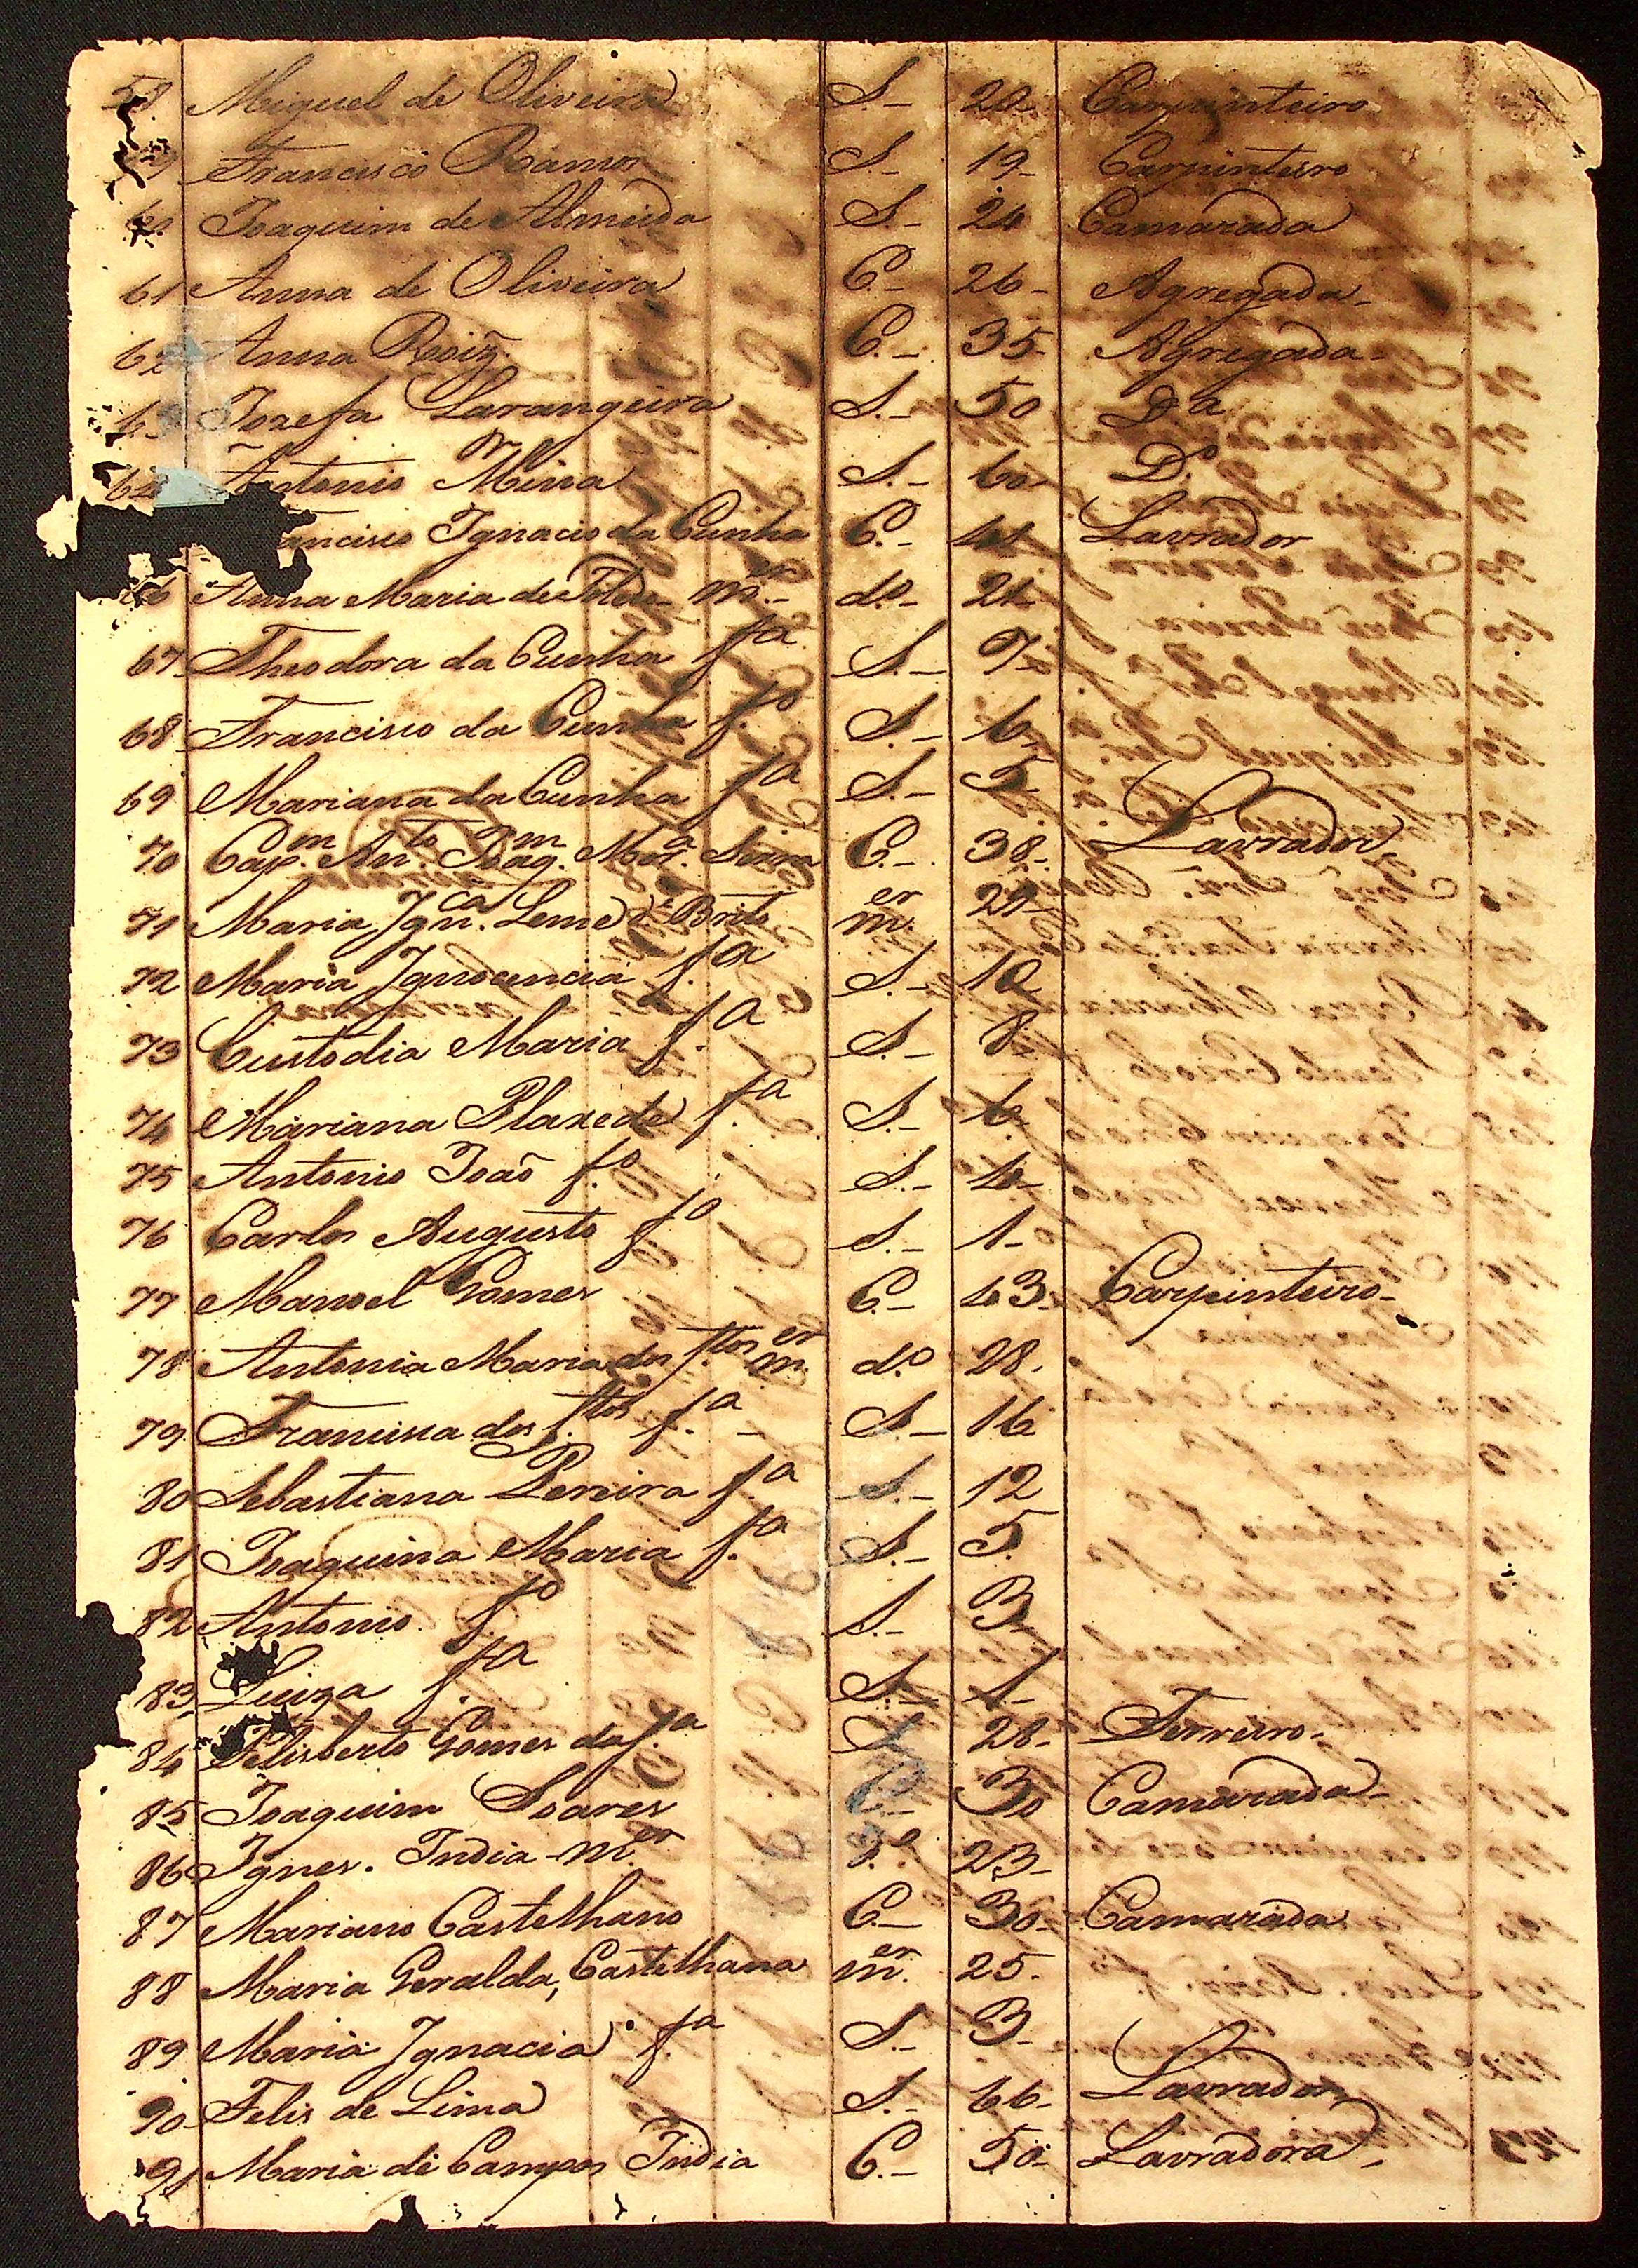 58 Miguel de Oliveira S.- 20- Carpinteiro
59 Francisco Ramos S.- 19- Carpinteiro
60 Joaquim de Almeida S.- 24 Camarada
61 Anna de Oliveira C.- 26- Agregada-
62 Anna Roiz̃. C.- 35- Agregada-
63 Jozefa Larangeira S.- 50 Dª
64 Antonio Mina S.- 60- Dº
ancisco Ignacio da Cunha C.- 41 Lavrador
66 Anna Maria de Toledo m.er d.º- 21-
67 Theodora da Cunha f.ª S.- 7-
68 Francisco da Cunha f.º S.- 6-
69 Mariana da Cunha f.ª S.- 5-
70 Cap.m An.to Joaq.m Mor.ª Serra C.- 38- Lavrador
71 Maria Ign.ca Leme de Brito m.er 29-
72 Maria Ignocencia f.ª S.- 10
73 Custodia Maria f.ª S.- 8-
74 Mariana Plaxede f.ª S.- 6-
75 Antonio João f.º S.- 4-
76 Carlos Augusto f.º S.- 1-
77 Manoel Gomes C.- 43- Carpinteiro-
78 Antonia Maria dos S.tos m.er d.º 28.
79 Francisca dos S.tos f.ª - S.- 16
80 Sebastiana Pereira f.ª S.- 12
81 Joaquina Maria f.ª S.- 5.
82 Antonio f.º S.- 3-
83 Luiza f.ª S.- 1-
84 Felisberto Gomes da S.ª S 28- Ferreiro-
85 Joaquim Soares C.- 30 Camarada-
86 Ignes. India m.er d.º 23-
87 Mariano Castelhano C.- 30- Camarada
88 Maria Geralda, Castelhana m.er 25.
89 Maria Ignacia f.ª S.- 3-
90 Felis de Lima S.- 66- Lavrador
91 Maria de Campos India C.- 50- Lavradora-